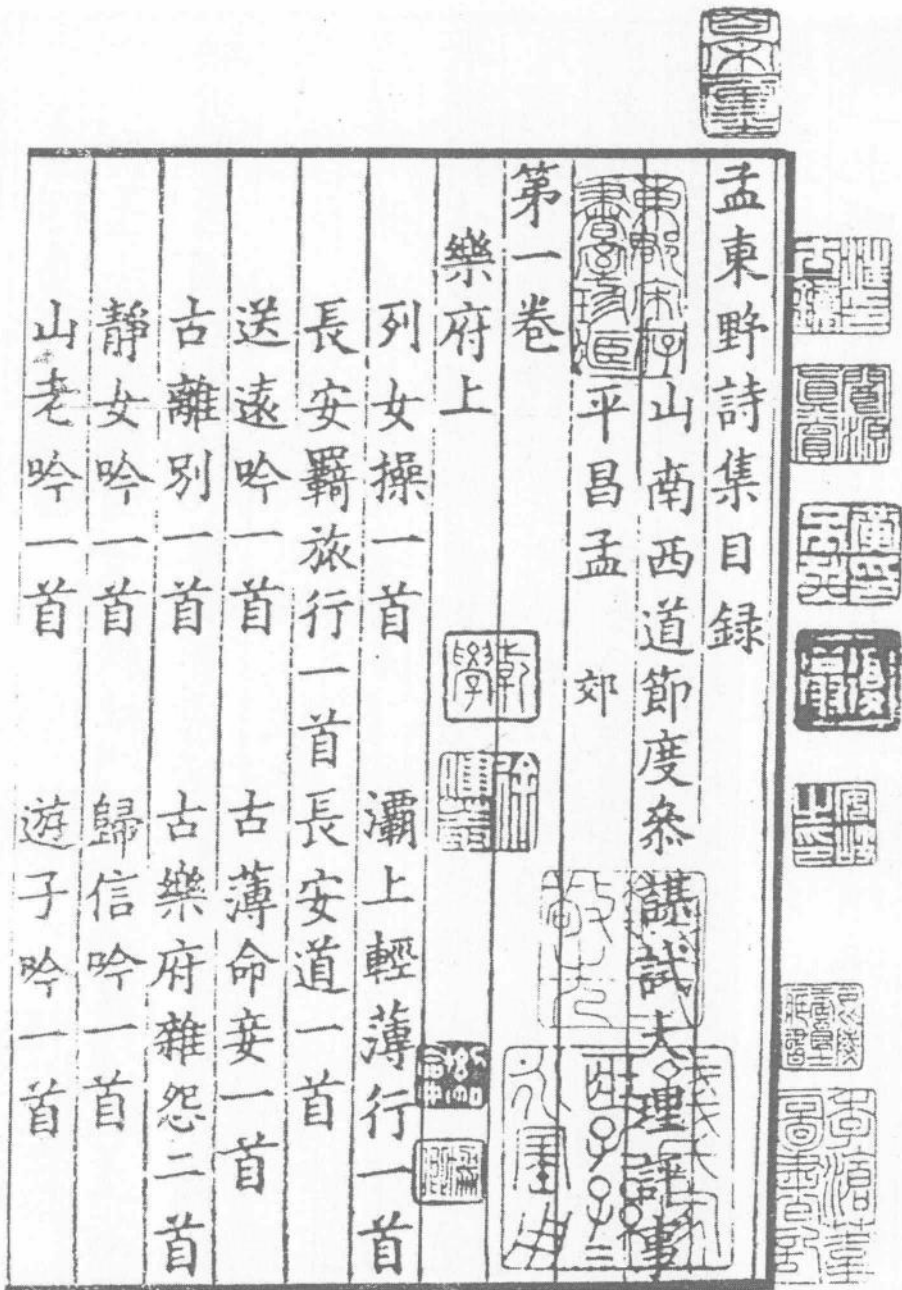 孟東野詩集目録
山南西道節度叅謀試大理評事
平昌孟郊
第一卷
樂府上
列女操一首 灞上輕薄行一首
長安羇旅行一首 長安道一首
送遠吟一首 古薄命妾一首
古離別一首 古樂府雜怨二首
靜女吟一首 歸信吟一首
山老吟一首 遊子吟一首
乾學
徐健菴